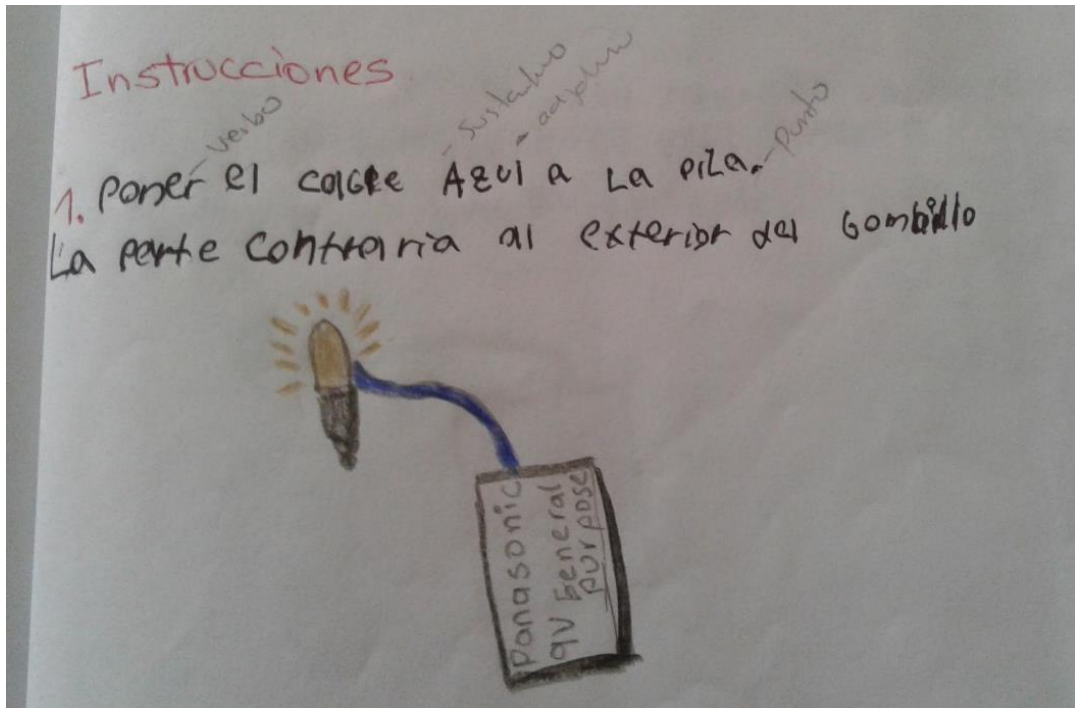 Instrucciones
- verbo
- sustantivo
- adjetivo
- punto
1. Poner el cable Azul a La pila.
La parte contraria al exterior del bombillo
Panasonic
9V General
purpose